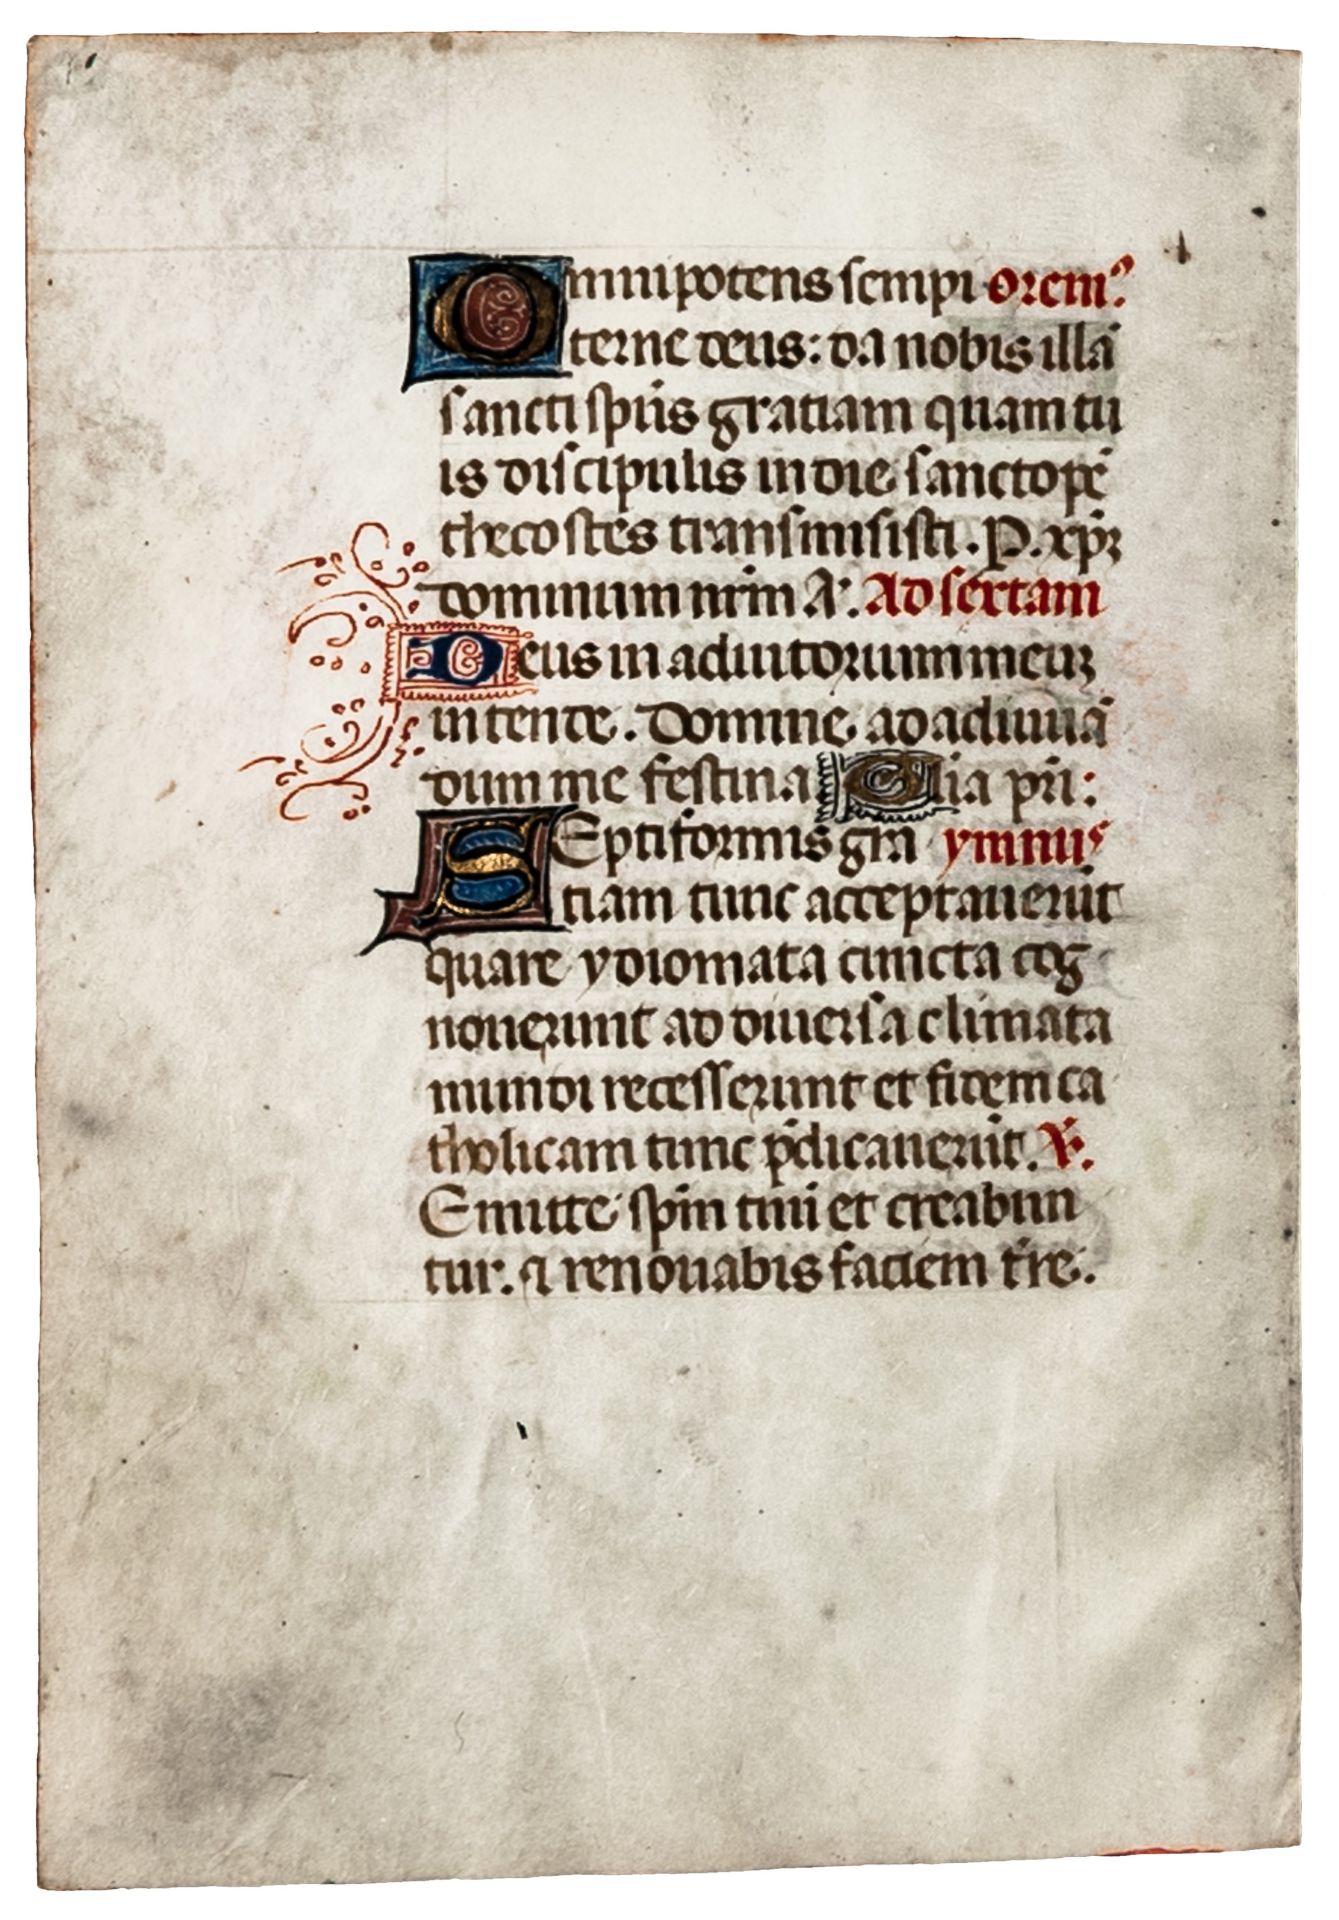 Omnipotens sempi orem⁹.
terne deus: da nobis illā
sancti sp̄us gratiam quam tu
is discipulis in die sancto pē
thecostes transmisisti. P. xp̄ꝫ
dominum nr̄m A'. Ad sextam
Deus in adiutorium meuꝫ
intende. Domine ad adiuuā
dum me festina Glia pri:
SEptiformis grā ymnus
tiam tunc acceptauerūt
quare ydiomata cuncta cog
nouerunt ad diuersa climata
mundi recesserunt et fidem ca
tholicam tunc p̄dicauerūt. ℣.
Emitte sp̄m tuū et creabun
tur. ⁊ renouabis faciem tr̄e.